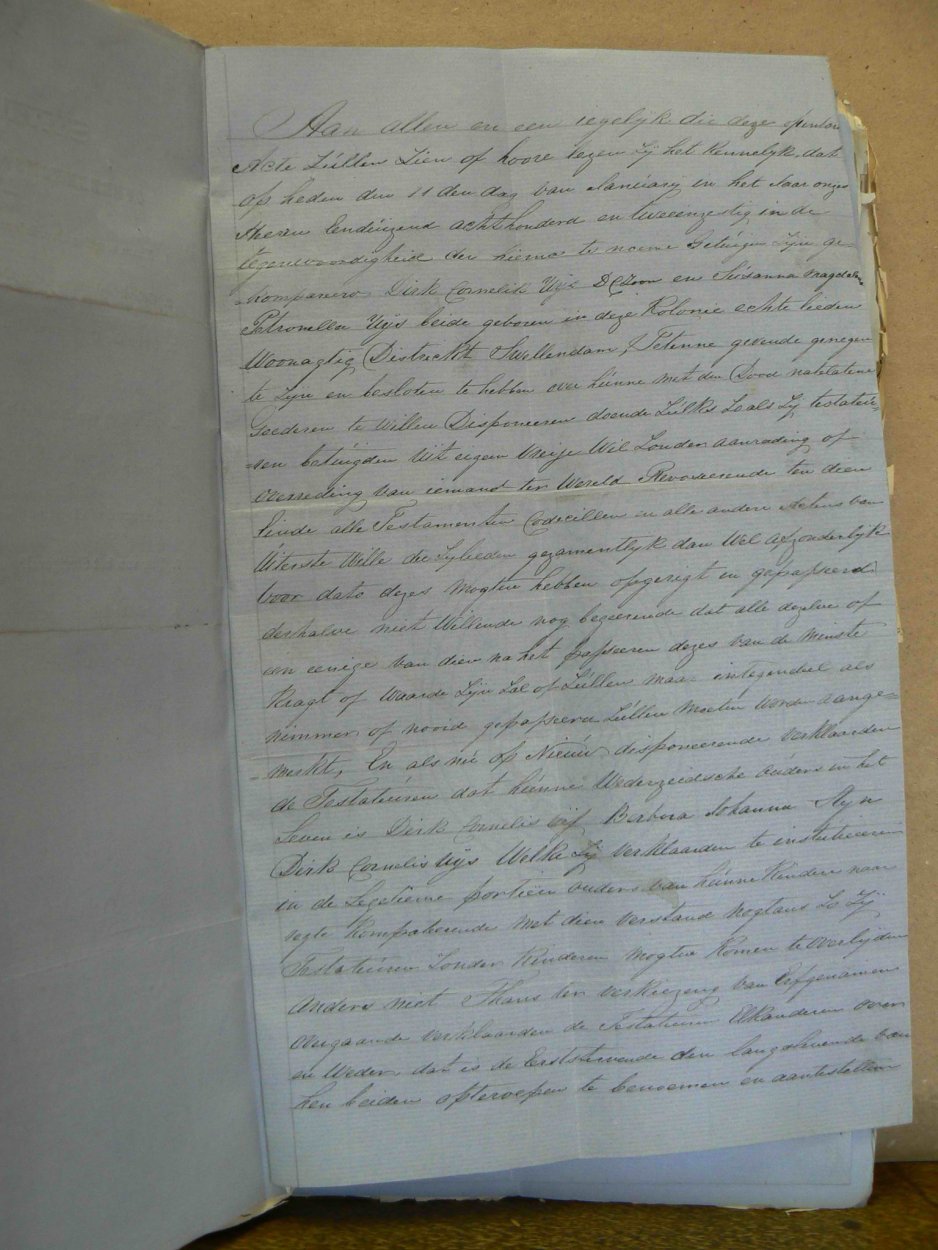 Aan allen en een iegelyk die deze openbare
Acte Zúllen Zien of hoore lezen Zij het kennelyk dat
op heden den 11 den dag van Janúarij in het Jaar onzes
Heren Eendúizend achthonderd en tweeenzestig in de
tegenwoordigheid der hierna te noeme Getúigen Zyn ge=
=kompareerd Dirk Cornelis Uijs D C Zoon en Susanna Magdalena
Petronella Uijs beide geboren in deze Kolonie echte lieden
Woonagtig District Swellendam, gevende genegen
te Zyn en besloten te hebben over húnne met den Dood natelatene
Goederen te willen Disponeren doende Zúlks Zo als Zij testateú=
=ren betúigden Uit eigen Vreije Wil Zonder aanrading of
overreding van iemand ter Wereld Revoceerende ten deen
einde alle Testamenten Codicillen en alle andere Actens van
Úiterste Wille die Zijlieden gezamentlyk dan Wel afzonderlyk
voor dato dezes mogten hebben opgeregt en gepasseerd
derhalve niet Willende nog begeerende dat alle dezelve of
een eenige van dien na het passeeren dezes van de minste
Kragt of Waarde Zyn Zal of Zúllen maar integendeel als
nimmer of nooid gepasseerd Zúllen moeten worden aange=
merkt, En als nú op Nieúw disponeerende verklaarden
de Testateúren dat húnne Wederzeidsche oúders in het
Leven is Dirk Cornelis Uijs Berbera Johanna Steyn
Dirk Cornelis Uijs Welke Zij verklaarden te institueeren
in de Legetieme portien oúders van húnne Kinderen naar
regte kompeteerende met dien verstand nogtans Zo Zij
Testateúren Zonder Kinderen mogten Komen te overlijden
anders niet Thans ter verkiezing van Erfgenamen
overgaande verklaarden de Testateúren Elkanderen over
en Weder, dat is de Eerststervende den langstlevende van
hen beiden opteroepen te benoemen en aantestellen